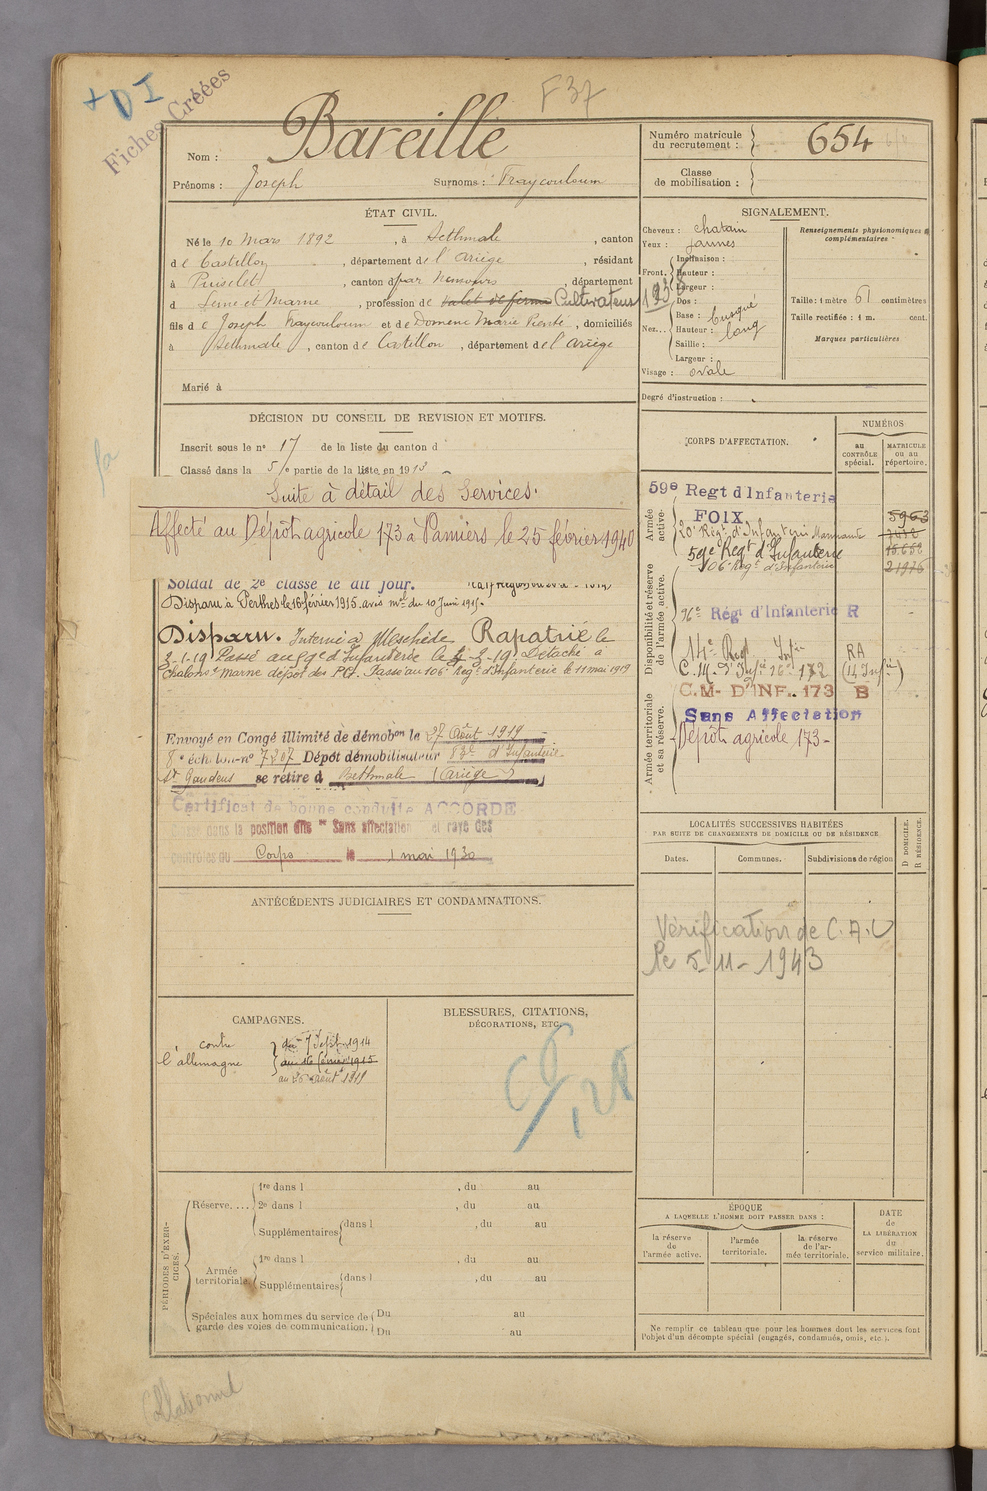 + D I
Fiches Créées
F 37
Nom : Bareille
Prénoms : Joseph Surnoms : Fraycouloum
Numéro matricule du recrutement : 654
Classe de mobilisation :
ÉTAT CIVIL.
Né le 10 Mars 1892, à Bethmale, canton
de Castillon, département de l'Ariège, résidant
à Puiselet, canton d par Nemours, département
d Seine et Marne, profession de valet de ferme Cultivateur
fils de Joseph Fraycouloum et de Domenc Marie, domiciliés
à Bethmale, canton de Castillon, département de l'Ariège
Marié à
SIGNALEMENT.
Cheveux : chatain
Yeux : jaunes
Front. Inclinaison :
Hauteur :
Largeur :
Nez... Dos :
Base : busqué
Hauteur : long
Saillie :
Largeur :
Visage : ovale
Renseignements physionomiques complémentaires
Taille : 1 mètre 61 centimètres
Taille rectifiée : 1 m. cent.
Marques particulières
Degré d'instruction :
DÉCISION DU CONSEIL DE REVISION ET MOTIFS.
Inscrit sous le n° 17 de la liste du canton d
Classé dans la 5e partie de la liste en 1913
Suite à détail des Services.
Affecté au Dépôt agricole 173 à Pamiers le 25 février 1940
Soldat de 2e classe le dit jour.
Disparu à Perthes le 16 février 1915. avis mel du 10 Juin 1915.
Disparu. Interné à Meschede Rapatrié le
Passé au 9e d'Infanterie le Détaché à
Chalons s/ Marne dépôt des P.G. Passé au 106e Regt d'Infanterie le 11 mai 1919
Envoyé en Congé illimité de démobon le 27 Août 1919
8e échelon n° 7207 Dépôt démobilisateur 83e d'Infanterie
St Gaudens se retire à Bethmale (Ariège)
Certificat de bonne conduite ACCORDÉ
dans la position dite "Sans affectation" et rayé des
contrôles du Corps le 1 mai 1930
CORPS D'AFFECTATION.
NUMÉROS
au CONTRÔLE spécial.
MATRICULE ou au répertoire.
Armée active.
59e Regt d'Infanterie
FOIX 5963
20e Régt d'Infanterie Marmande
59e Regt d'Infanterie 15.652
106e Regt d'Infanterie 21976
Disponibilité et réserve de l'armée active.
Régt d'Infanterie R
14e Regt Infie RA
C.M. d'Infie 16e 172 (14 Infie)
C.M- D'INF. 173 B
Armée territoriale et sa réserve.
Sans Affectation
Dépôt agricole 173-
LOCALITÉS SUCCESSIVES HABITÉES
PAR SUITE DE CHANGEMENTS DE DOMICILE OU DE RÉSIDENCE
Dates. Communes. Subdivisions de région
D DOMICILE.
R RÉSIDENCE.
Vérification de C.A.U
le 5-11-1943
ANTÉCÉDENTS JUDICIAIRES ET CONDAMNATIONS.
CAMPAGNES.
contre l'allemagne
du 7 Sept. 1914
au 16 février 1915
au 26 août 1919
BLESSURES, CITATIONS,
DÉCORATIONS, ETC.
PÉRIODES D'EXERCICES.
Réserve.... 1re dans l , du au
2e dans l , du au
Supplémentaires dans l , du au
Armée territoriale 1re dans l , du au
Supplémentaires dans l , du au
Spéciales aux hommes du service de garde des voies de communication. Du au
Du au
ÉPOQUE
A LAQUELLE L'HOMME DOIT PASSER DANS :
la réserve de l'armée active.
l'armée territoriale.
la réserve de l'armée territoriale.
DATE de LA LIBÉRATION du service militaire.
Ne remplir ce tableau que pour les hommes dont les services font
l'objet d'un décompte spécial (engagés, condamnés, omis, etc.).
Collationné